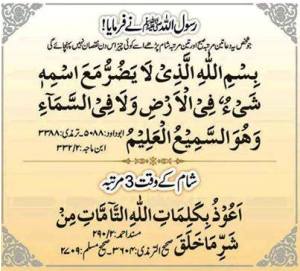 رسول اللہ ﷺ نے فرمایا!
جو شخص یہ دعا تین مرتبہ صبح اور تین مرتبہ شام پڑھے اسے کوئی چیز اس دن نقصان نہیں پہنچائے گی
بِسْمِ اللهِ الَّذِیْ لَا یَضُرُّ مَعَ اسْمِهٖ
شَیْءٌ، فِی الْاَرْضِ وَلَا فِی السَّمَآءِ
وَهُوَ السَّمِیْعُ الْعَلِیْمُ ابو داود: ۵۰۸۸- ترمذی: ۳۳۸۸
ابن ماجہ: ۳۳۲/۲
شام کے وقت 3 مرتبہ
اَعُوْذُ بِکَلِمَاتِ اللهِ التَّآمَّاتِ مِنْ
شَرِّ مَا خَلَقَ مسند احمد: ۲۹۰/۲
صحیح الترمذی: ۳۶۰۴- صحیح مسلم: ۲۷۰۹